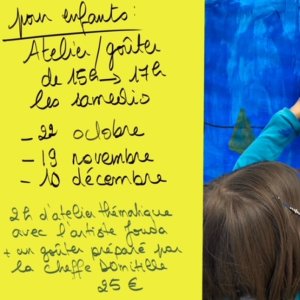 pour enfants :
Atelier/goûter
de 15h → 17h
les samedis
- 22 octobre
- 19 novembre
- 10 décembre
2h d'atelier thématique
avec l'artiste Jouda
+ un goûter préparé par
la cheffe Domitille
25 €